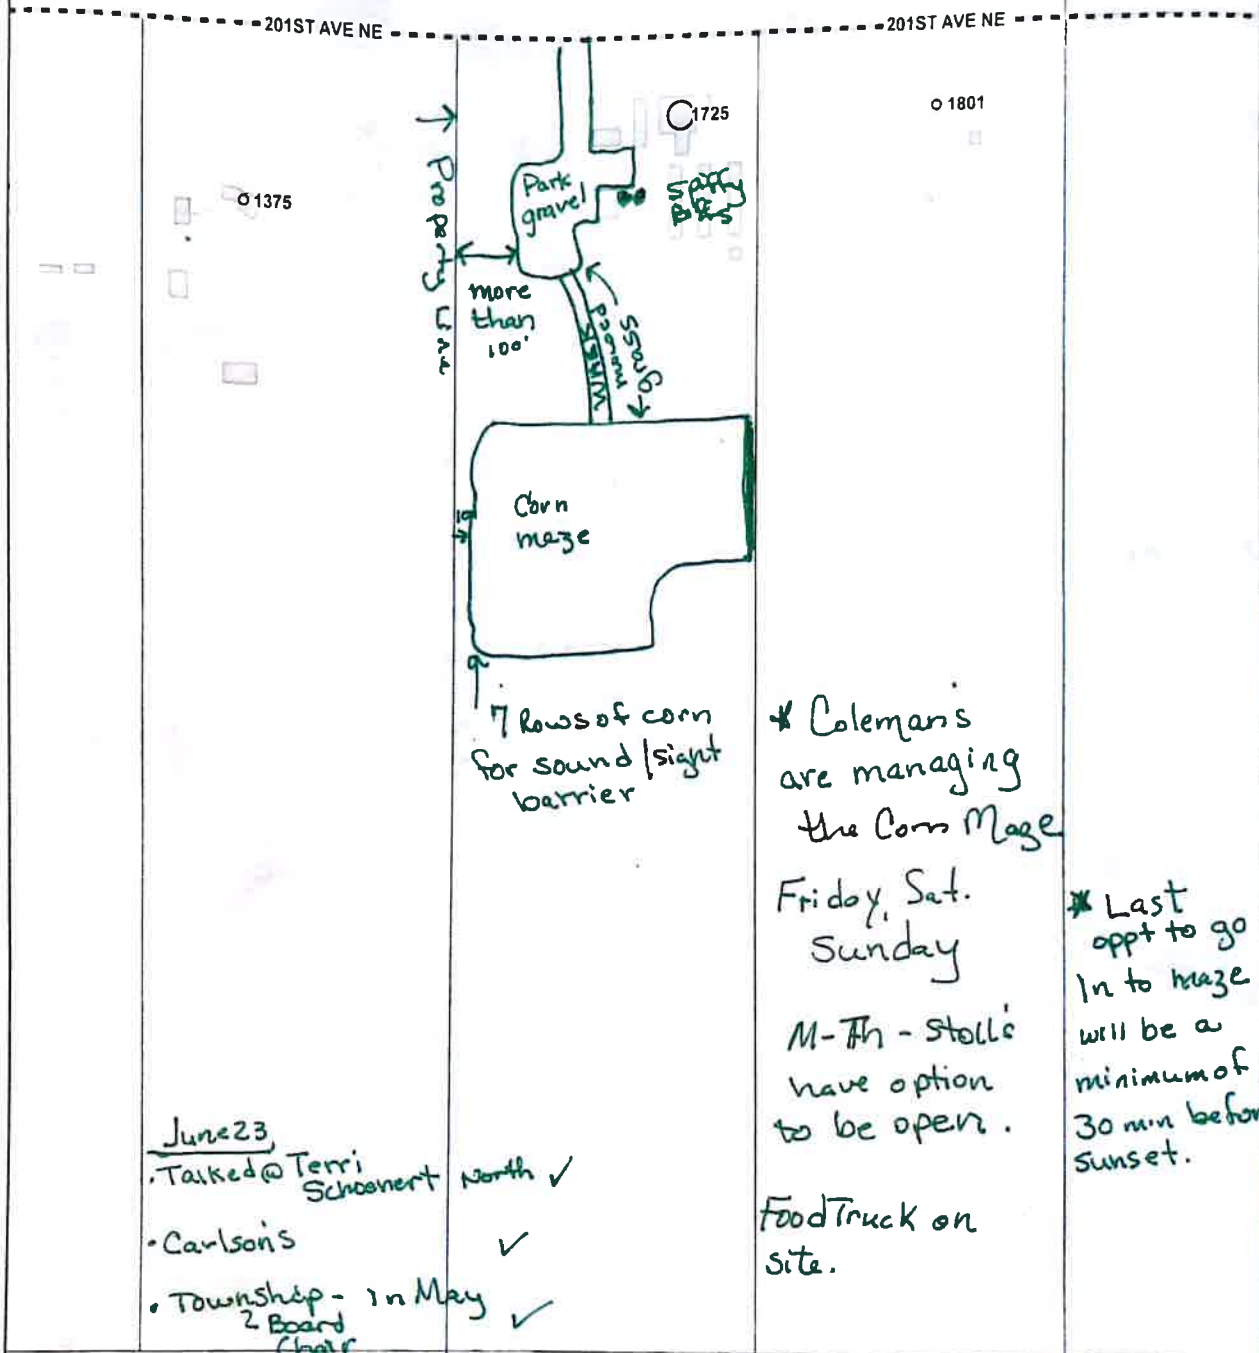 201ST AVE NE
201ST AVE NE
1725
1801
1375
Property Line
Park
gravel
Spiffy
Biffs
more
than
100'
mowed
grass
Corn
maze
7 Rows of corn
for sound / sight
barrier
* Coleman's
are managing
the Corn Maze
Friday, Sat.
Sunday
M-Th - Stoll's
have option
to be open.
Food Truck on
site.
* Last
oppt to go
In to maze
will be a
minimum of
30 min befor
sunset.
June 23
• Talked @ Terri
Schoonert North ✓
• Carlson's ✓
• Township - in May ✓
2 Board
Chair